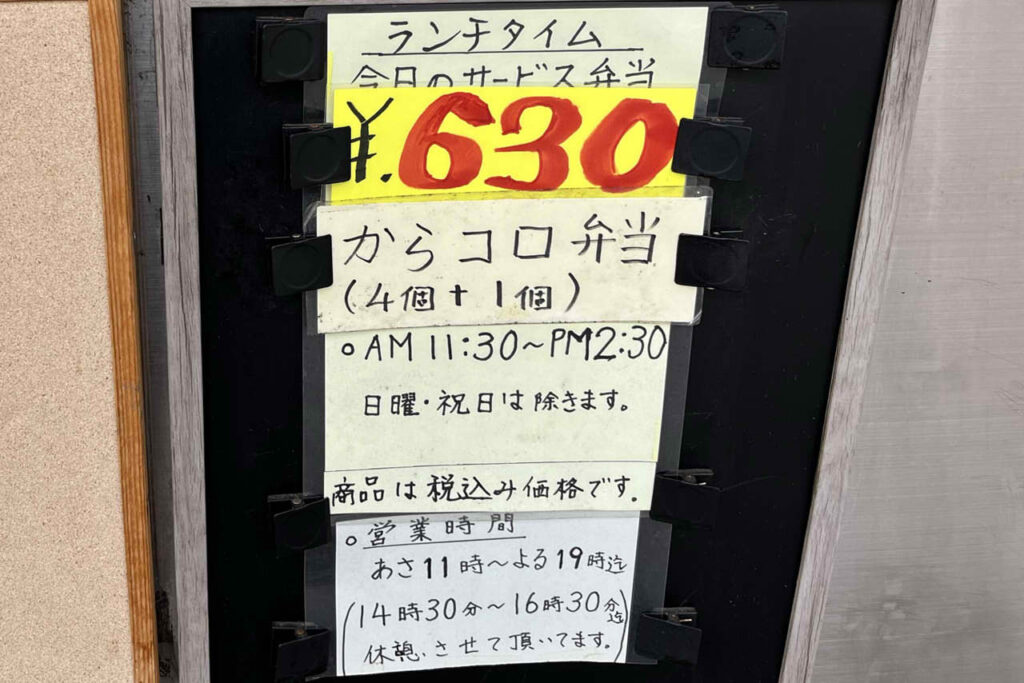 ランチタイム
今日のサービス弁当
¥.630
からコロ弁当
(4個+1個)
○AM11:30~PM2:30
日曜・祝日は除きます。
商品は税込み価格です.
○営業時間
あさ11時~よる19時迄
(14時30分~16時30分迄
休憩させて頂いてます。)